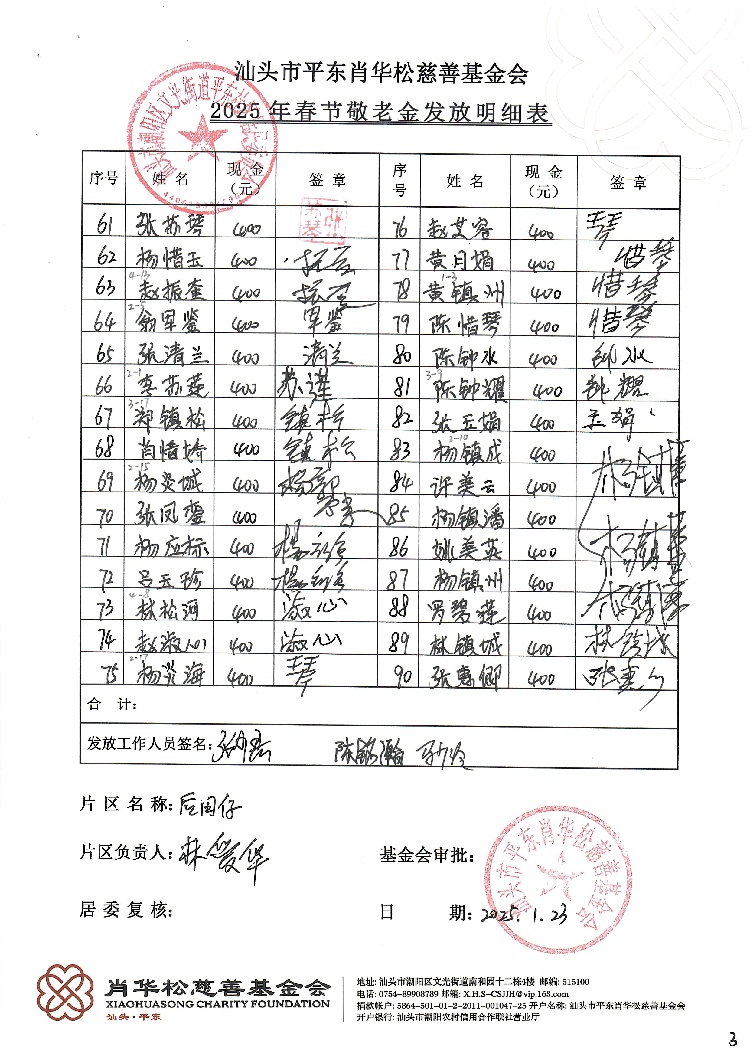 汕头市平东肖华松慈善基金会
2025年春节敬老金发放明细表
序号 姓名 现金(元) 签章 序号 姓名 现金(元) 签章
61 张苏琴 400 76 赵艾容 400 琴
62 杨惜玉 400 77 黄月娟 400 惜琴
63 4-13 赵振奎 400 振奎 78 1-3 黄镇州 400 惜琴
64 翁军鉴 400 军鉴 79 陈惜琴 400 惜琴
65 张清兰 400 清兰 80 陈钟水 400 钟水
66 2-1 李苏莲 400 苏莲 81 陈钟耀 400 钟耀
67 郑镇松 400 镇松 82 张玉娟 400 玉娟
68 肖惜娇 400 镇松 83 2-10 杨镇成 400
69 2-15 杨炎城 400 84 许美云 400
70 张凤銮 400 85 杨镇潘 400
71 杨应标 400 86 姚美英 400
72 吕玉珍 400 87 杨镇州 400
73 4-8 林松河 400 淑心 88 罗碧莲 400
74 赵淑心 400 淑心 89 林镇城 400 林镇城
75 杨炎海 400 琴 90 张惠卿 400 张惠卿
合计:
发放工作人员签名: 陈铭瀚
片区名称: 后围仔
片区负责人: 林爱华 基金会审批:
居委复核: 日期: 2025.1.23
汕头市平东肖华松慈善基金会
肖华松慈善基金会
XIAOHUASONG CHARITY FOUNDATION
汕头·平东
地址: 汕头市潮阳区文光街道南和园十二栋3楼 邮编: 515100
电话: 0754-89908789 邮箱: X.H.S-CSJJH@vip.163.com
捐款帐户: 5864-501-01-2-2011-001047-25 开户名称: 汕头市平东肖华松慈善基金会
开户银行: 汕头市潮阳农村信用合作联社营业厅
3